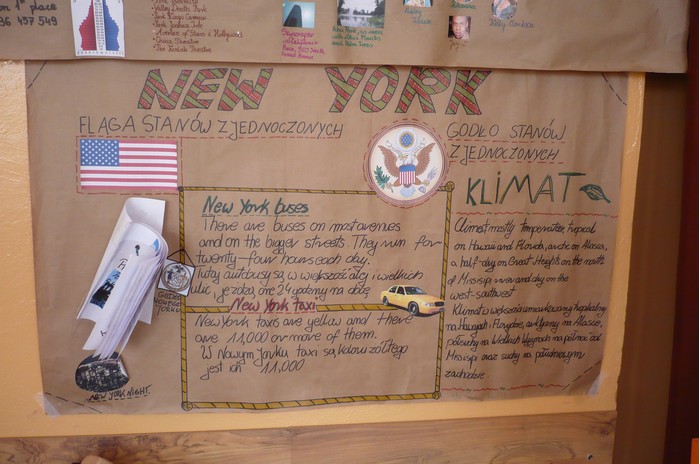 on 1st place
36 457 549
Valley Death Park
King's Canyon
Park Joshua Tree
Avenue of Stars in Hollywood
Chinese Theatre
The Kodak Theatre
NEW YORK
FLAGA STANÓW ZJEDNOCZONYCH
GODŁO STANÓW
ZJEDNOCZONYCH
KLIMAT
New York buses
There are buses on most avenues
and on the bigger streets. They run for
twenty-four hours each day.
Tutaj autobusy są w większości alej i wielkich
ulic, i jeżdżą one 24 godziny na dobę
New York taxi
New York taxis are yellow and there
are 11,000 or more of them.
W Nowym Jorku taxi są koloru żółtego
jest ich 11,000
GODŁO
NOWEGO
YORKU
NEW YORK NIGHT.
Climat mostly temperature, tropical
on Hawaii and Florida, arctic on Alasca,
a half-dry on Great Heights on the north
of Missisipi river and dry on the
west-southwest
Klimat w większości umiarkowany, tropikalny
na Hawajach i Florydzie, arktyczny na Alasce,
półsuchy na Wielkich Wyżynach na północ od
Missisipi oraz suchy na południowym
zachodzie